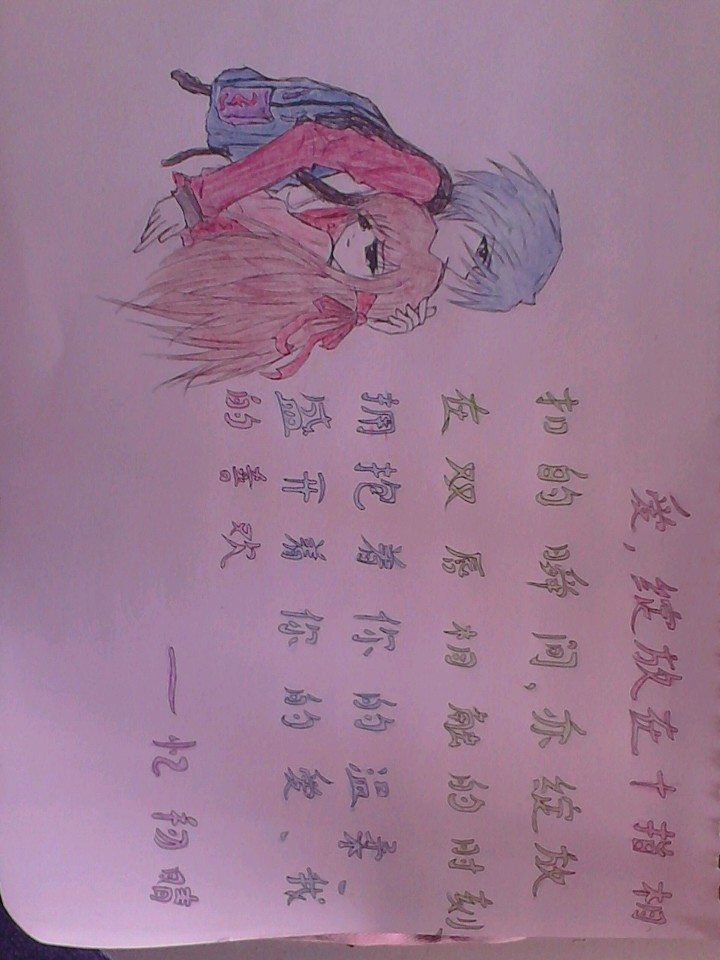 爱,绽放在十指相
扣的瞬间,亦绽放
在双唇相触的时刻
拥抱着你的温柔、
盛开着你的爱、我
的喜欢
——忆初晴